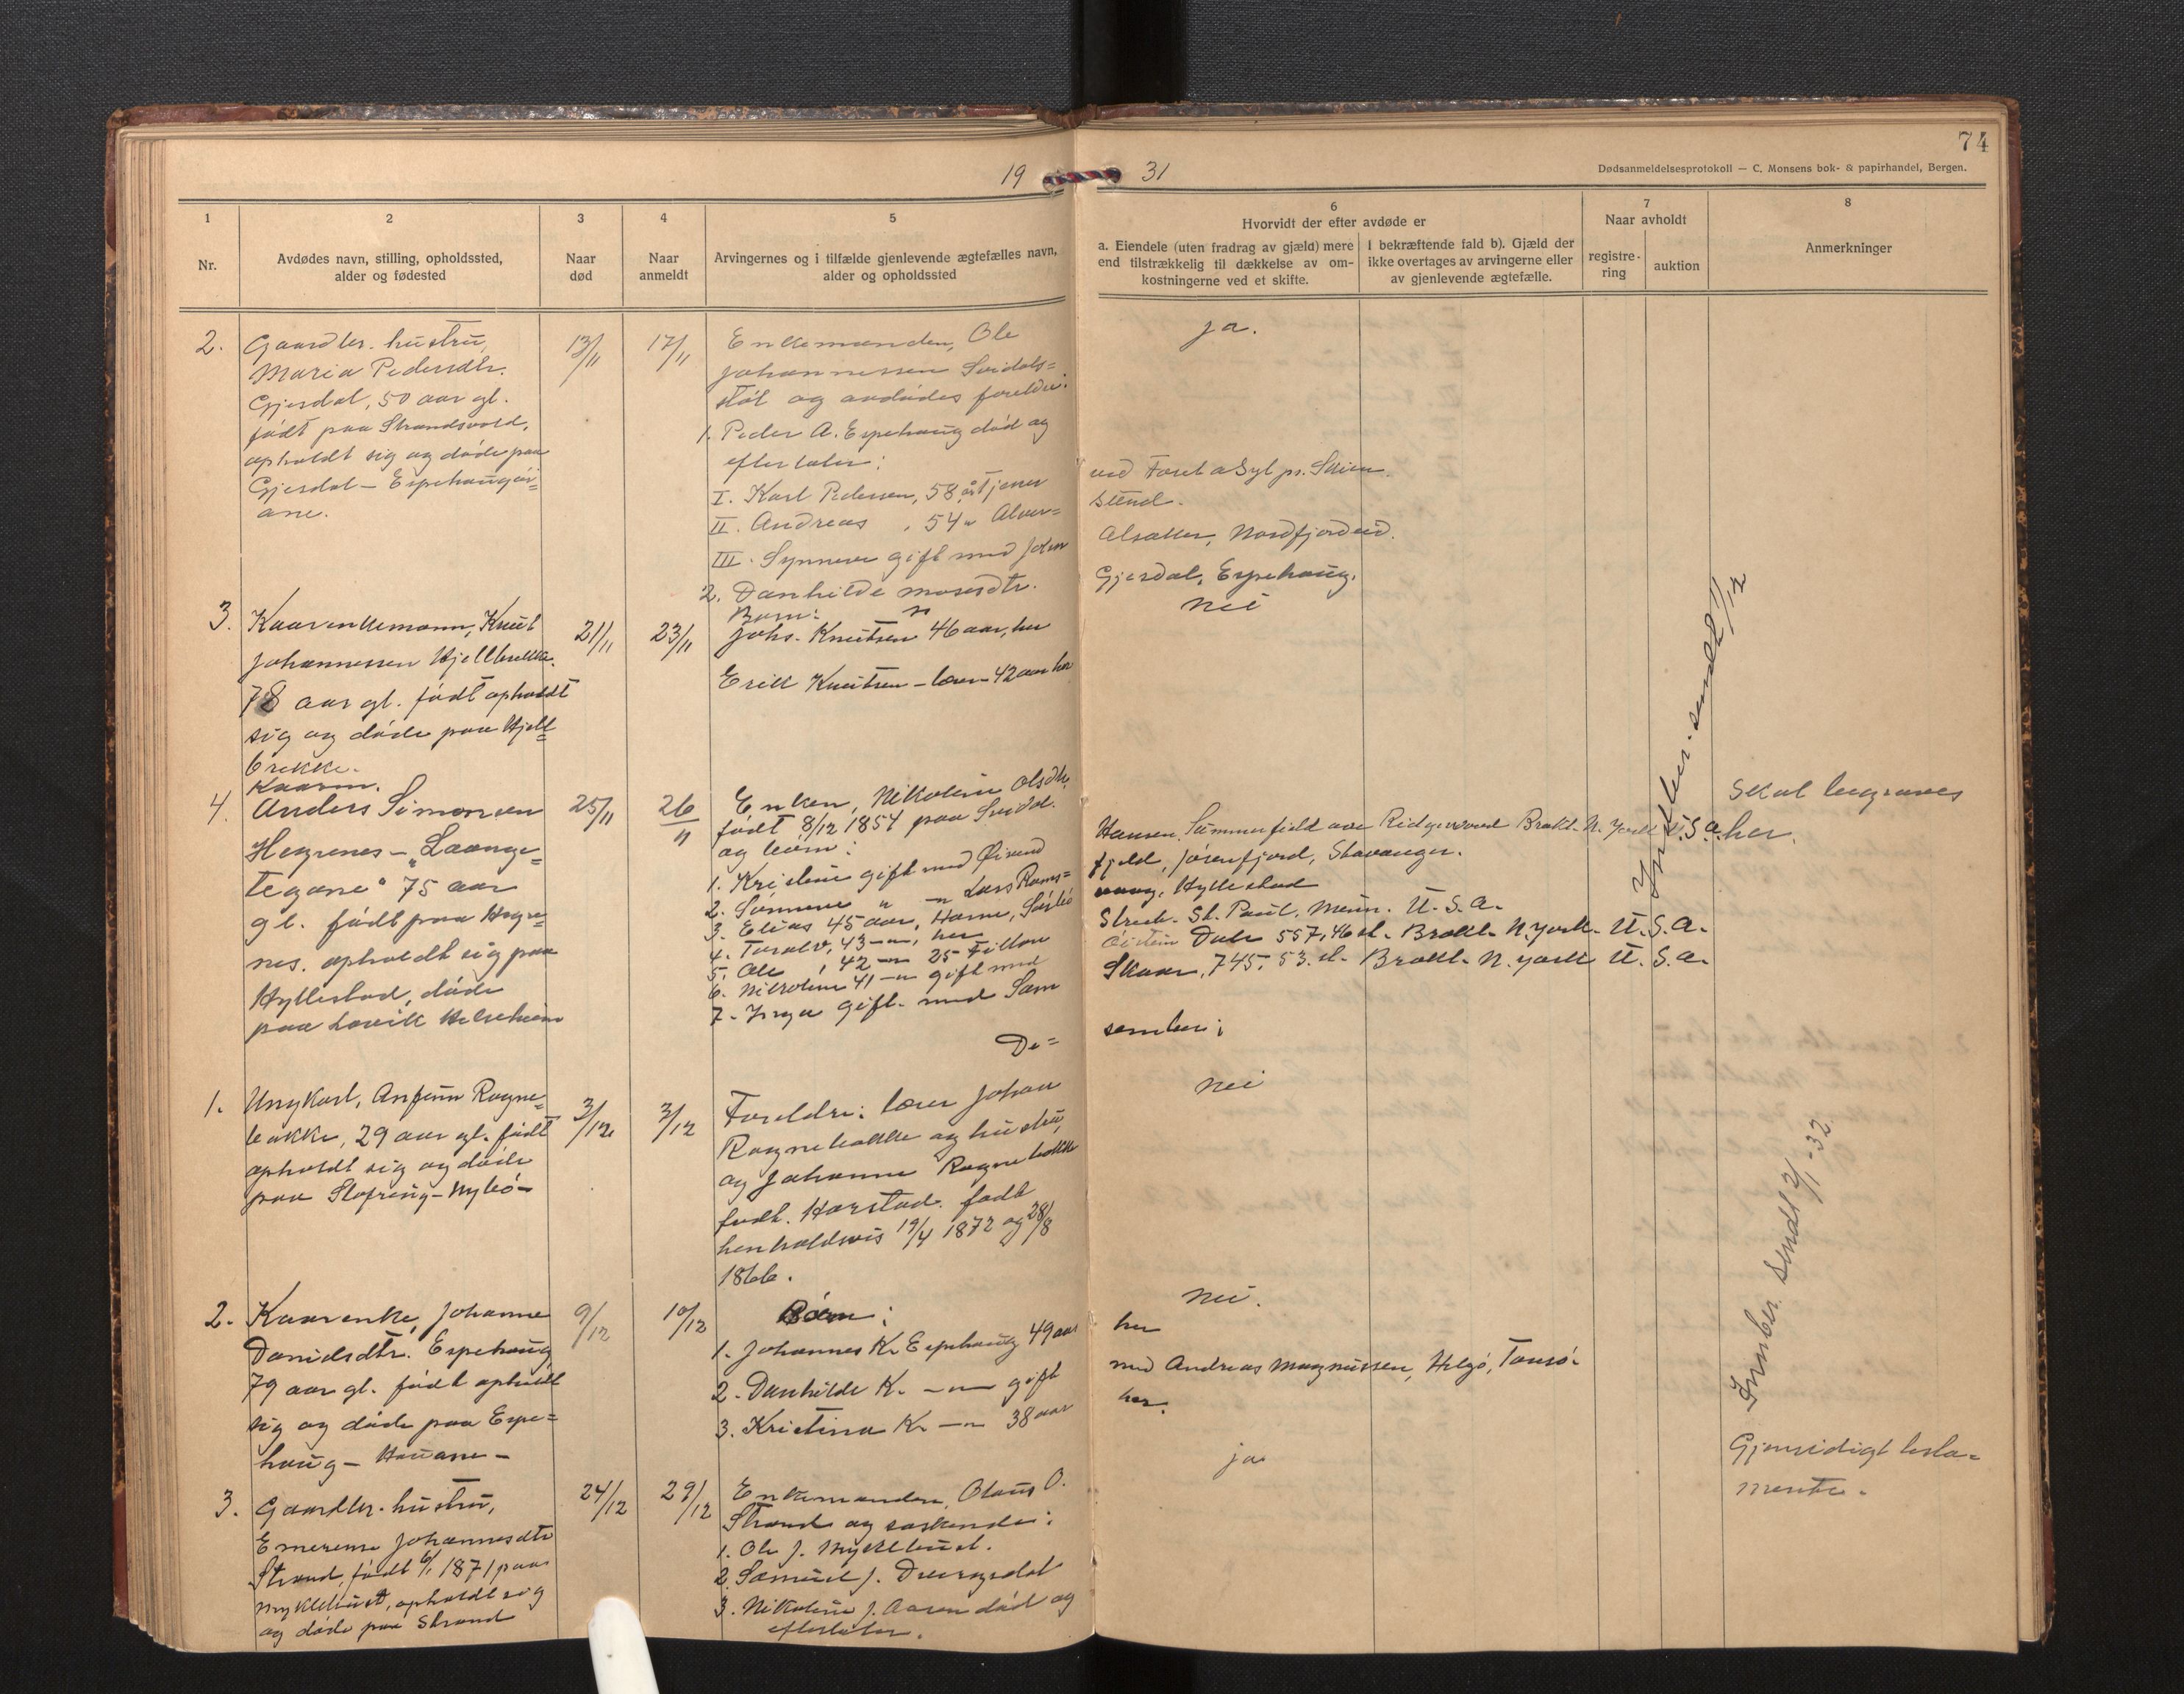 74
19 31
Dødsanmeldelsesprotokoll — C. Monsens bok- & papirhandel, Bergen.
1
Nr.
2
Avdødes navn, stilling, opholdssted,
alder og fødested
3
Naar
død
4
Naar
anmeldt
5
Arvingernes og i tilfælde gjenlevende ægtefælles navn,
alder og opholdssted
6
Hvorvidt der efter avdøde er
a. Eiendele (uten fradrag av gjæld) mere
end tilstrækkelig til dækkelse av om-
kostningerne ved et skifte.
I bekræftende fald b). Gjæld der
ikke overtages av arvingerne eller
av gjenlevende ægtefælle.
7
Naar avholdt
registre-
ring
auktion
8
Anmerkninger
2.
Gaardbr. hustru,
Maria Pedersdtr.
Gjesdal, 50 aar gl.
født paa Strandsvold,
opholdt sig og døde paa
Gjesdal — Espehaugør=
ane.
13/11
17/11
Enkemanden, Ole
Johannessen Svidals=
støl og avdødes foreldre:
1. Peder A. Espehaug død og
efterlater:
I. Karl Pedersen, 58 år tjener
II. Andreas " , 54 " Alver=
III. Synneve gift med John
2. Danhilde Mosesdtr.
ja.
ved Foset asyl pr. Skien.
Stend.
Alsaker, Nordfjordeid.
Gjesdal, Espehaug.
3.
Kaarenkemann, Knut
Johannessen Hjellbrekke.
78 aar gl. født opholdt
sig og døde paa Hjell=
brekke.
21/11
23/11
Barn:
Johs. Knutsen 46 aar, her
Erik Knutsen — lærer — 42 aar her
nei
4.
Kaarm.
Anders Simonsen
Hegrenes — „Laange=
tegane“ 75 aar
gl. født paa Hegre=
nes. opholdt sig paa
Hyllestad, døde
paa Lavik Helseheim
25/11
26/11
Enken, Nikoline Olsdtr,
født 8/12 1854 paa Svidal.
og børn:
1. Kristine gift med Øivind
2. Sønneve " — " Lars Rams=
3. Elias 45 aar, Harne, Sørbø
4. Toralv, 43 — " , her
5. Ole , 42 — " 25 Tilton
6. Nikoline 41 — " gift med
7. Inga gift. med Sam
Hansen, Summerfield ave Ridgewood Brokl. N. York U.S.A.
fjeld, Jøsenfjord, Stavanger.
vaag, Hyllestad
Streek. St. Paul, Meun. U.S.A.
Øistein Dale 557, 46 st. Brokl. N. York. U.S.A.
Skaar, 745, 53. st. Brokl. N. York U.S.A.
Skal begraves
her.
Innber. sendt 1/12
De=
sember:
1.
Ungkarl, Anfinn Rogne=
bakke, 29 aar gl. født
opholdt sig og døde
paa Sløfring — Nybø —
3/12
3/12
Foreldre: lærer Johan
Rognebakke og hustru,
og Johanne Rognebakke
født. Harstad. født
henholdsvis 19/4 1872 og 28/8
1866.
nei
2.
Kaarenke, Johanne
Danielsdtr. Espehaug
79 aar gl. født opholdt
sig og døde paa Espe=
haug — Hauane —
9/12
10/12
Børn:
1. Johannes K. Espehaug 49 aar
2. Danhilde K. — " — gift
3. Kristina K. — " 38 aar
nei.
her
med Andreas Magnussen, Helgø, Tomsø.
her.
Innber. sendt 2/1 - 32
3.
Gaardbr. hustru,
Emerense Johannesdtr
Strand, født 6/1 1871 paa
Myklebust, opholdt sig
og døde paa Strand
24/12
29/12
Enkemanden, Olaus O.
Strand og søskende:
1. Ole J. Myklebust.
2. Samuel J. Duesgsdal
3. Nikoline J. Aasen død og
efterlater.
ja
Gjensidigt testa=
mente.